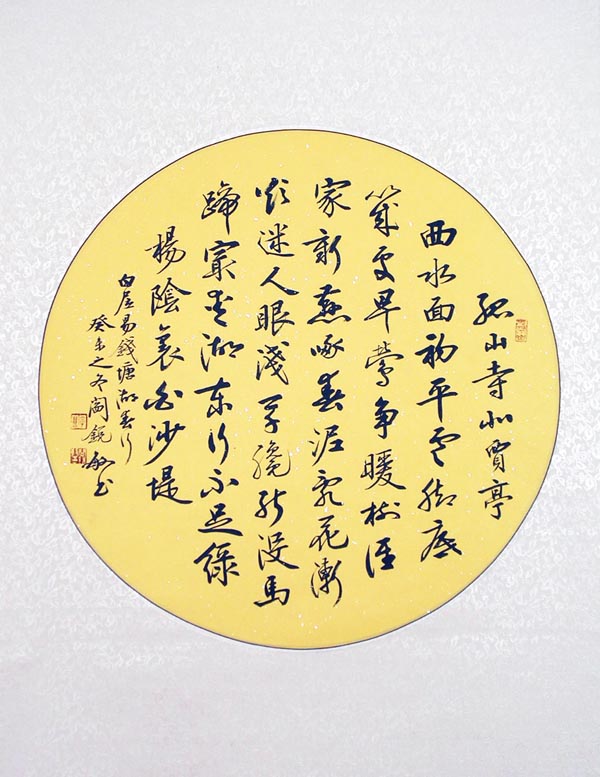 孤山寺北賈亭
西水面初平雲腳底
幾處早鶯争暖樹誰
家新燕啄春泥亂花漸
欲迷人眼淺草纔能沒馬
蹄最愛湖東行不足綠
楊陰裏白沙堤
白居易錢塘湖春行
癸未之冬閻銳敏書